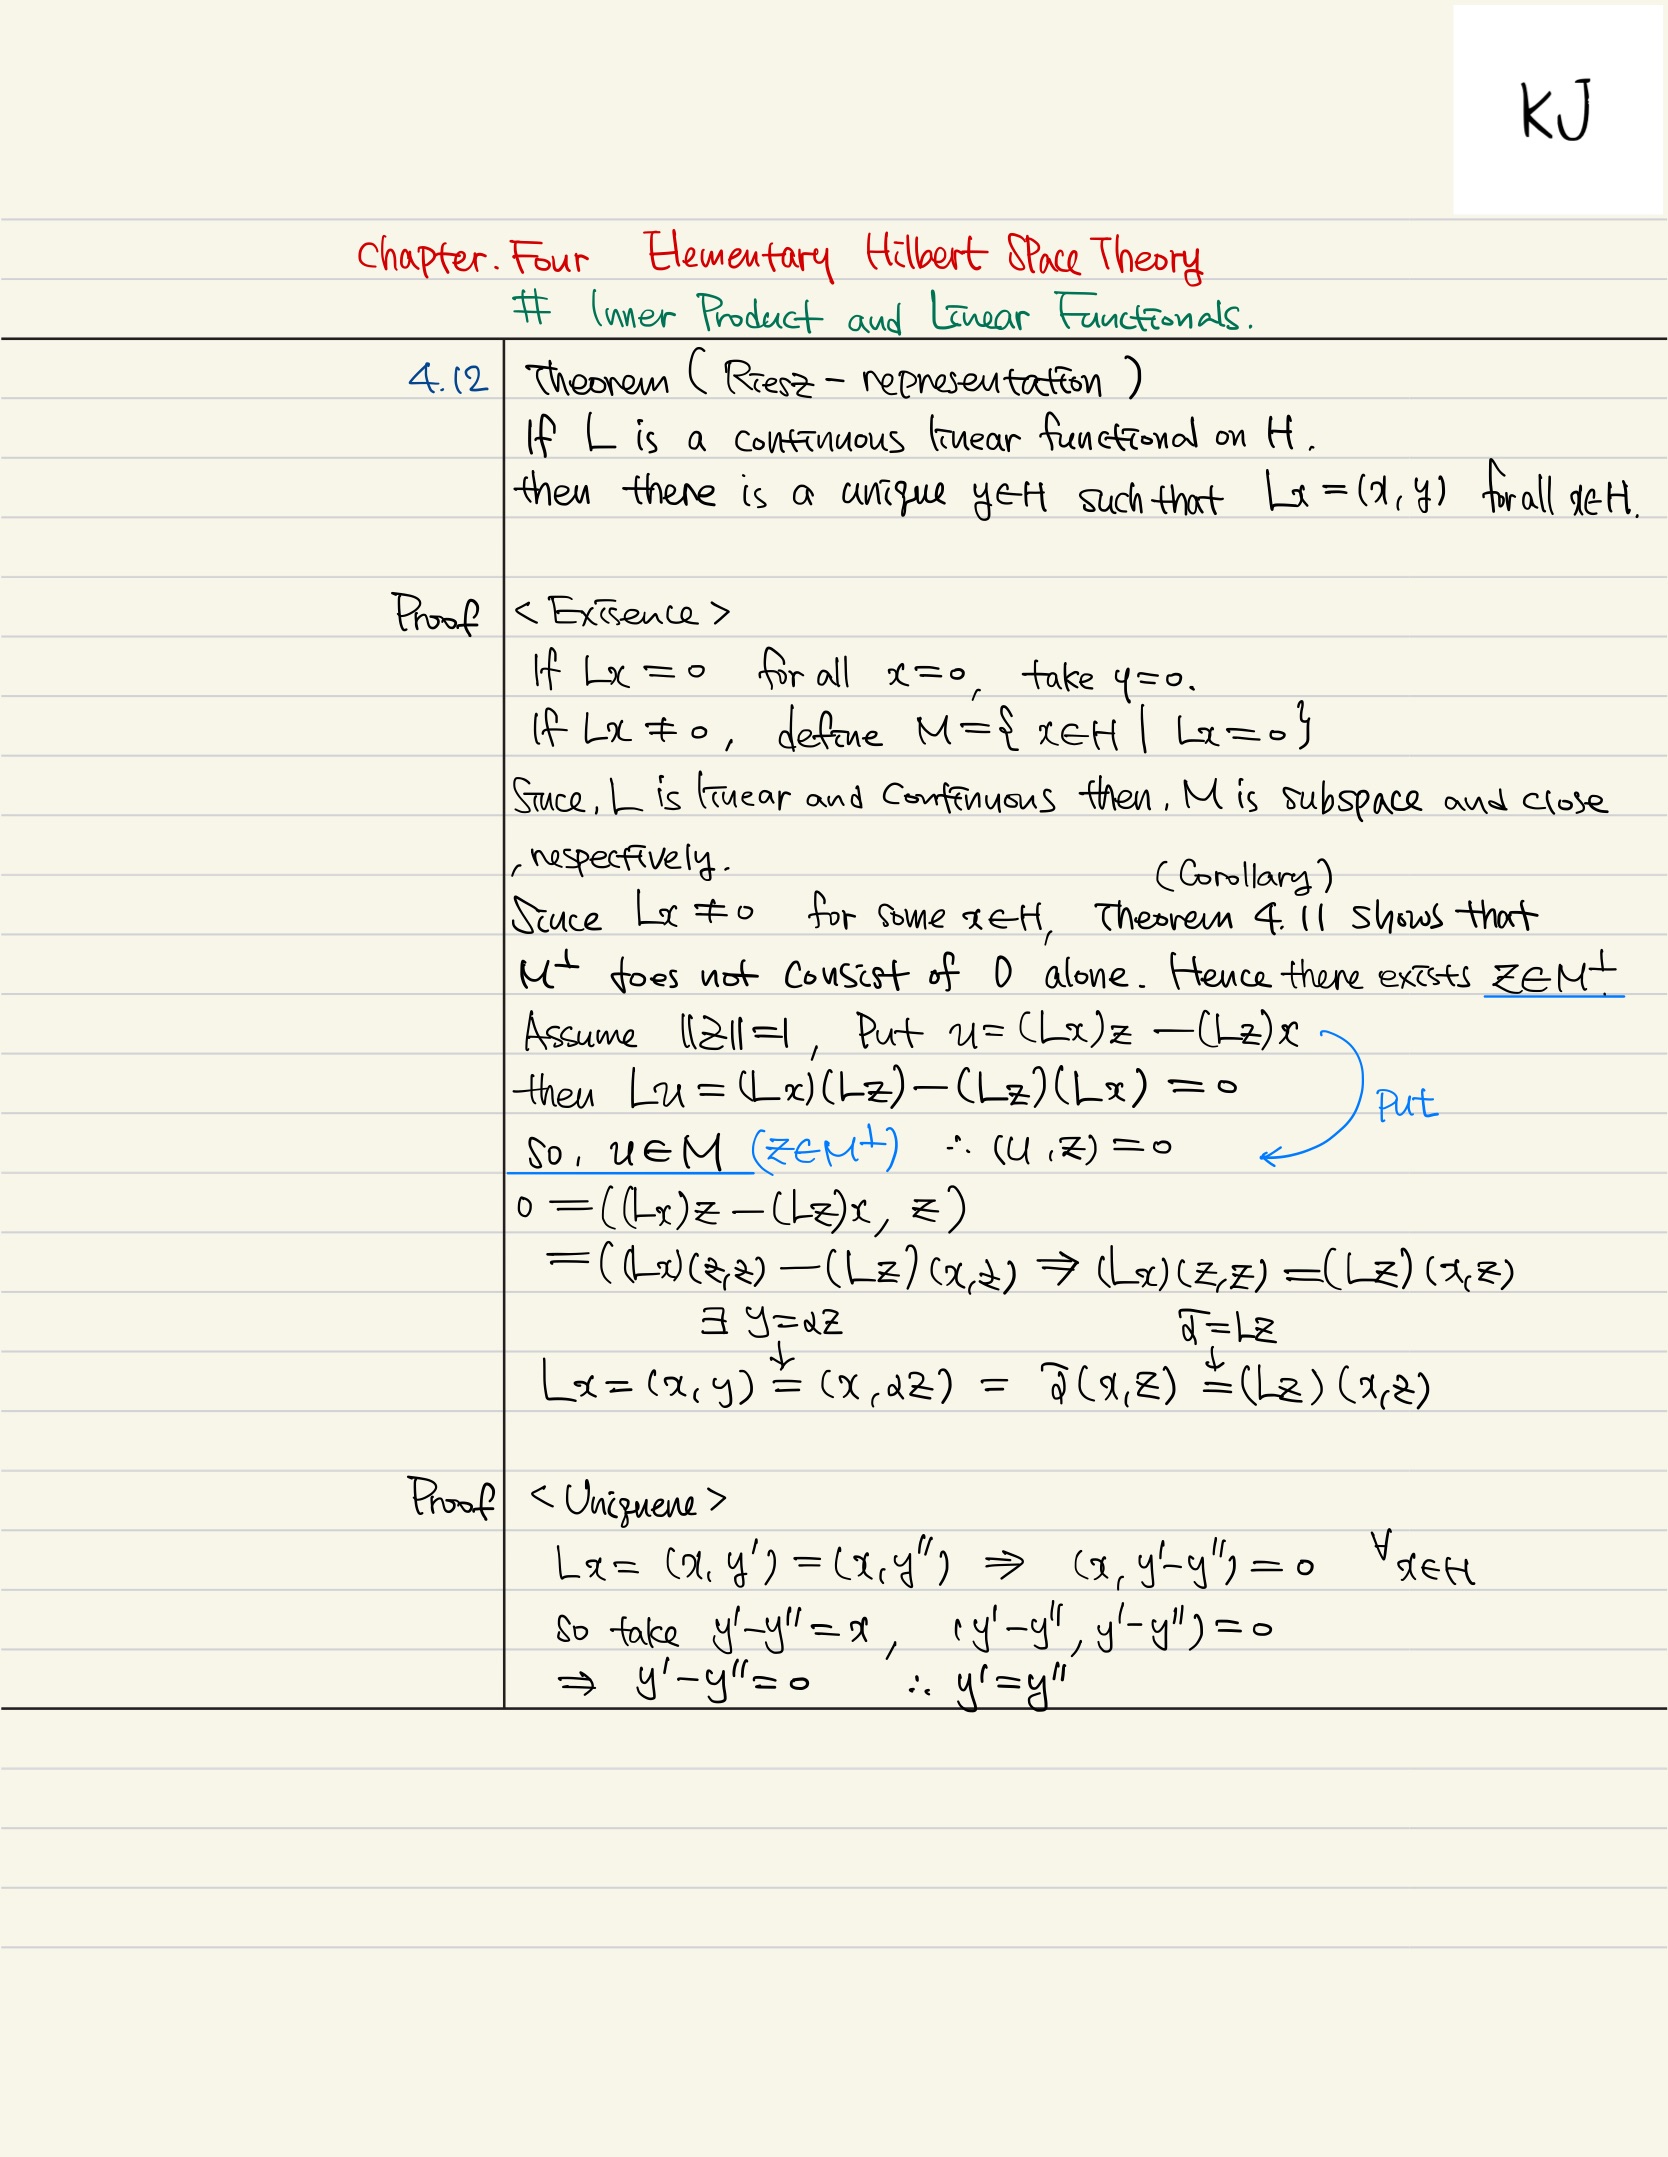 KJ
Chapter. Four Elementary Hilbert Space Theory
# Inner Product and Linear Functionals.
4.12 Theorem (Riesz - representation)
If L is a continuous linear functional on H.
then there is a unique y∈H such that Lx = (x, y) for all x∈H.
Proof < Exisence >
If Lx = 0 for all x=0, take y=0.
If Lx ≠ 0, define M = { x∈H | Lx=0 }
Since, L is linear and continuous then, M is subspace and close
, respectively.
(Corollary)
Since Lx ≠ 0 for some x∈H, Theorem 4.11 shows that
M⊥ does not consist of 0 alone. Hence there exists z∈M⊥.
Assume ||z||=1, Put u = (Lx)z − (Lz)x
then Lu = (Lx)(Lz) − (Lz)(Lx) = 0
Put
so, u∈M (z∈M⊥) ∴ (u, z) = 0
0 = ((Lx)z − (Lz)x, z)
= ((Lx)(z,z) − (Lz)(x,z) ⇒ (Lx)(z,z) = (Lz)(x,z)
∃ y=αz ᾱ=Lz
↓ ↓
Lx = (x, y) = (x, αz) = ᾱ(x,z) = (Lz)(x,z)
Proof < Uniquene >
Lx = (x, y') = (x, y'') ⇒ (x, y'−y'') = 0 ∀x∈H
so take y'−y'' = x, (y'−y'', y'−y'') = 0
⇒ y'−y'' = 0 ∴ y' = y''